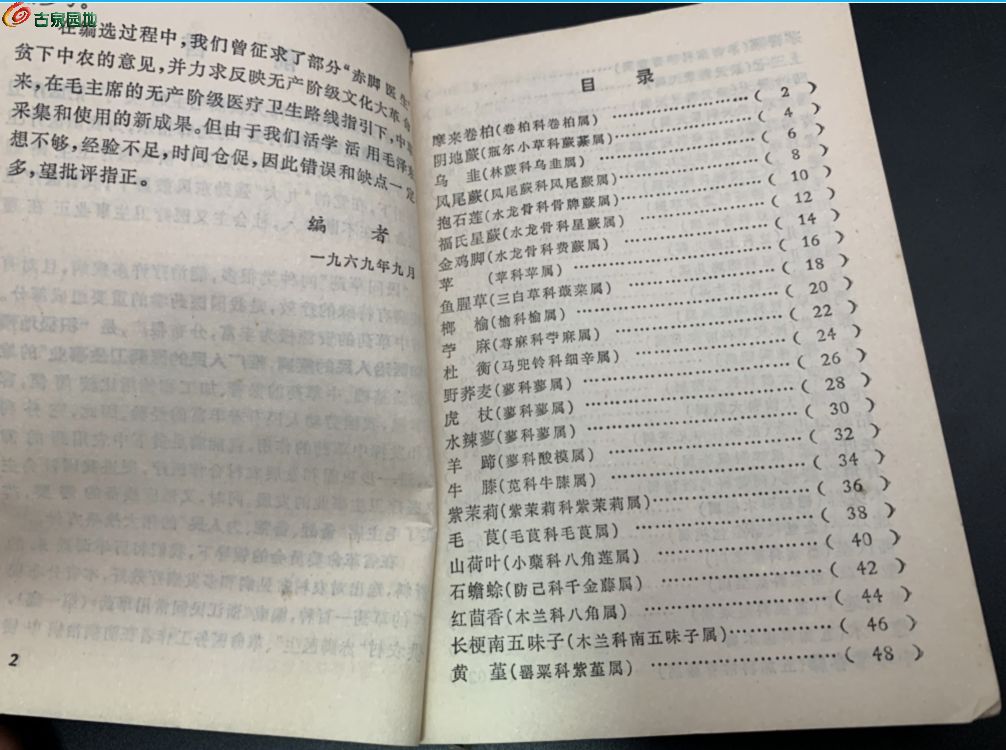 古泉园地
在编选过程中，我们曾征求了部分“赤脚医生”
贫下中农的意见，并力求反映无产阶级文化大革命
来，在毛主席的无产阶级医疗卫生路线指引下，中草
采集和使用的新成果。但由于我们活学活用毛泽东
想不够，经验不足，时间仓促，因此错误和缺点一定
多，望批评指正。
编 者
一九六九年九月
2
目 录
摩来卷柏（卷柏科卷柏属）……………（ 2 ）
阴地蕨（瓶尔小草科蕨萁属）……………（ 4 ）
乌 韭（林蕨科乌韭属）……………（ 6 ）
凤尾蕨（凤尾蕨科凤尾蕨属）……………（ 8 ）
抱石莲（水龙骨科骨牌蕨属）……………（ 10 ）
福氏星蕨（水龙骨科星蕨属）……………（ 12 ）
金鸡脚（水龙骨科费蕨属）……………（ 14 ）
苹 （苹科苹属）……………（ 16 ）
鱼腥草（三白草科蕺菜属）……………（ 18 ）
榔 榆（榆科榆属）……………（ 20 ）
苧 麻（荨麻科苧麻属）……………（ 22 ）
杜 衡（马兜铃科细辛属）……………（ 24 ）
野荞麦（蓼科蓼属）……………（ 26 ）
虎 杖（蓼科蓼属）……………（ 28 ）
水辣蓼（蓼科蓼属）……………（ 30 ）
羊 蹄（蓼科酸模属）……………（ 32 ）
牛 膝（苋科牛膝属）……………（ 34 ）
紫茉莉（紫茉莉科紫茉莉属）……………（ 36 ）
毛 茛（毛茛科毛茛属）……………（ 38 ）
山荷叶（小蘖科八角莲属）……………（ 40 ）
石蟾蜍（防己科千金藤属）……………（ 42 ）
红茴香（木兰科八角属）……………（ 44 ）
长梗南五味子（木兰科南五味子属）……………（ 46 ）
黄 堇（罂粟科紫堇属）……………（ 48 ）